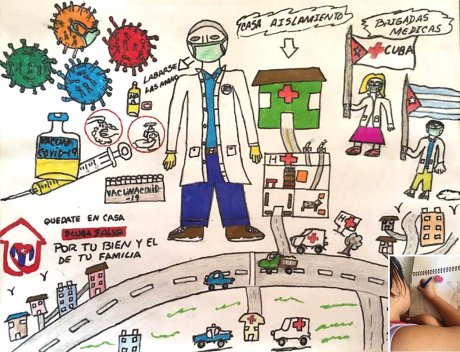 CASA AISLAMIENTO
BRIGADAS
MEDICAS
CUBA
LABARSE
LAS MANO
VACUNA
COVID-19
VACUNACOVID
-19
H
H
QUEDATE EN CASA
#CUBA SALVA
POR TU BIEN Y EL
DE TU FAMILIA